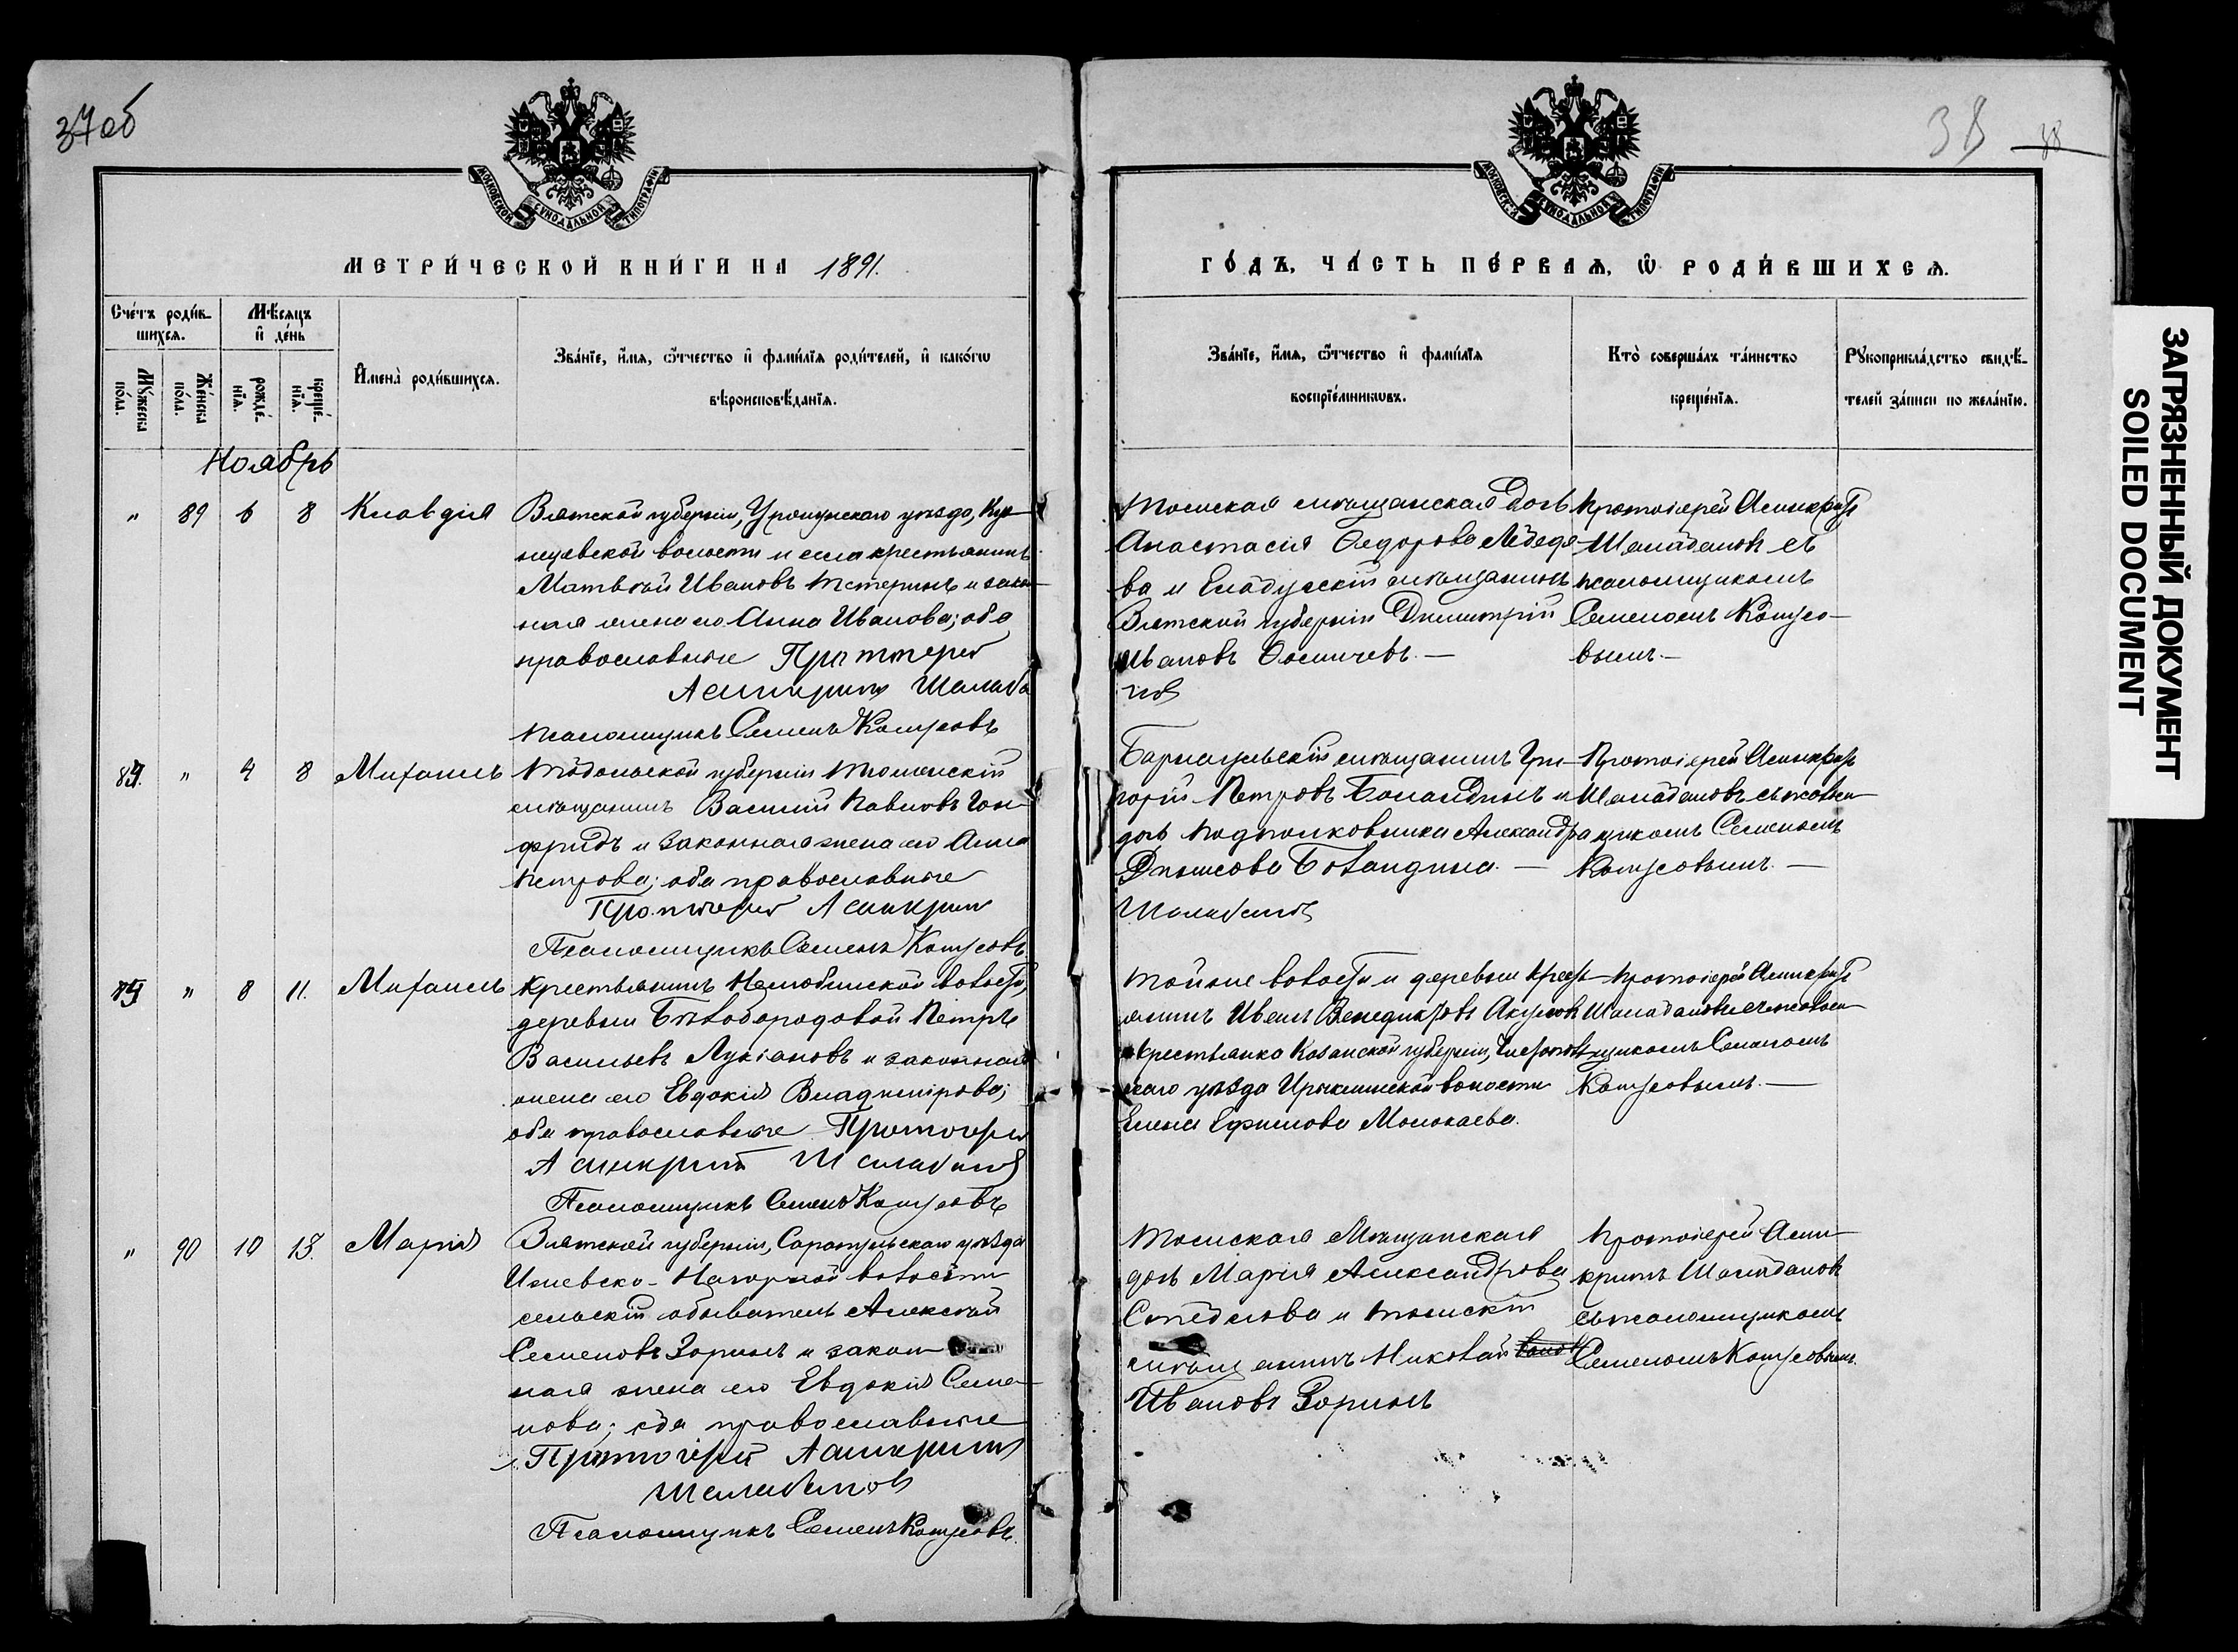 37об
38
38
МОСКОВСКОЙ СѴНОДАЛЬНОЙ ТИПОГРАФІИ
МОСКОВСКОЙ СѴНОДАЛЬНОЙ ТИПОГРАФІИ
МЕТРИ́ЧЕСКОЙ КНИ́ГИ НА 1891.
ГО́ДЪ, ЧА́СТЬ ПЕ́РВАѦ, Ѡ РОДИ́ВШИХСѦ.
Сче́тъ роди́в-
шихся.
Мѣ́сяцъ
и де́нь
Мꙋ́жеска
по́ла.
Же́нска
по́ла.
рожде́-
нїя.
креще́-
нїя.
Имена̀ роди́вшихся.
Зва́нїе, и́мя, ѻ́тчество и фами́лїя роди́телей, и како́гѡ
вѣроисповѣ́данїя.
Зва́нїе, и́мя, ѻ́тчество и фами́лїя
воспрїе́мникѡвъ.
Кто̀ соверша́лъ та́инство
креще́нїя.
Рꙋкоприкла́дство свидѣ́-
телей за́писи по жела́нїю.
Ноябрь
" 89 6 8 Клавдія
Вятской губерніи, Уржумскаго уѣзда,
волости и села крестьянинъ
Матвѣй Ивановъ и закон-
ная жена его Анна Иванова; оба
православные Протоіерей
Асинкритъ Шалаба
Псаломщикъ Семенъ Котусовъ
Томская мѣщанская дочь
Анастасія Ѳедорова Лебеде-
ва и Елабужскій мѣщанинъ
Вятской губерніи Димитрій
Ивановъ
нов
Протоіерей Асинкритъ
Шалабановъ съ
псаломщикомъ
Семеномъ Котусо-
вымъ.—
89. " 4 8 Михаилъ
Тобольской губерніи Тюменскій
мѣщанинъ Василій Павловъ Гот-
фридъ и законная жена его Анна
Петрова; оба православные
Протоіерей Асинкрит
Псаломщикъ Семенъ Котусовъ
Барнаульскій мѣщанинъ Гри-
горій Петровъ Баландинъ и
дочь подполковника Александра
Баландина.—
Шалабанов
Протоіерей Асинкритъ
Шалабановъ съ псалом-
щикомъ Семеномъ
Котусовымъ.—
" 8 11. Михаилъ
Крестьянинъ Нелюбинской волости,
деревни Бѣлобородовой Петръ
Васильевъ Лукіановъ и законная
жена его Евдокія Владимірова;
оба православные Протоіерей
Асинкрит Шалабанов
Псаломщикъ Семенъ Котусовъ
Той же волости и деревни крест-
янинъ Иванъ Венедиктовъ Акуловъ
и крестьянка Казанской губерніи, Чистополь-
скаго уѣзда волости
Елена Ефимова Молокаева.
Протоіерей Асинкритъ
Шалабановъ съ псалом-
щикомъ Семеномъ
Котусовымъ.—
" 90 10 13. Марія
Вятской губерніи, Сарапульскаго уѣзда
Ижевско-Нагорной волости
сельскій обыватель Алексѣй
Семеновъ Зоринъ и закон-
ная жена его Евдокія Семе-
нова; оба православные
Протоіерей Асинкритъ
Шалабанов
Псаломщикъ Семенъ Котусовъ.
Томская мѣщанская
дочь Марія Александрова
и томскій
мѣщанинъ Николай
Ивановъ Зоринъ
Протоіерей Асин-
критъ Шалабановъ
съ псаломщикомъ
Семеномъ Котусовымъ.
ЗАГРЯЗНЕННЫЙ ДОКУМЕНТ
SOILED DOCUMENT